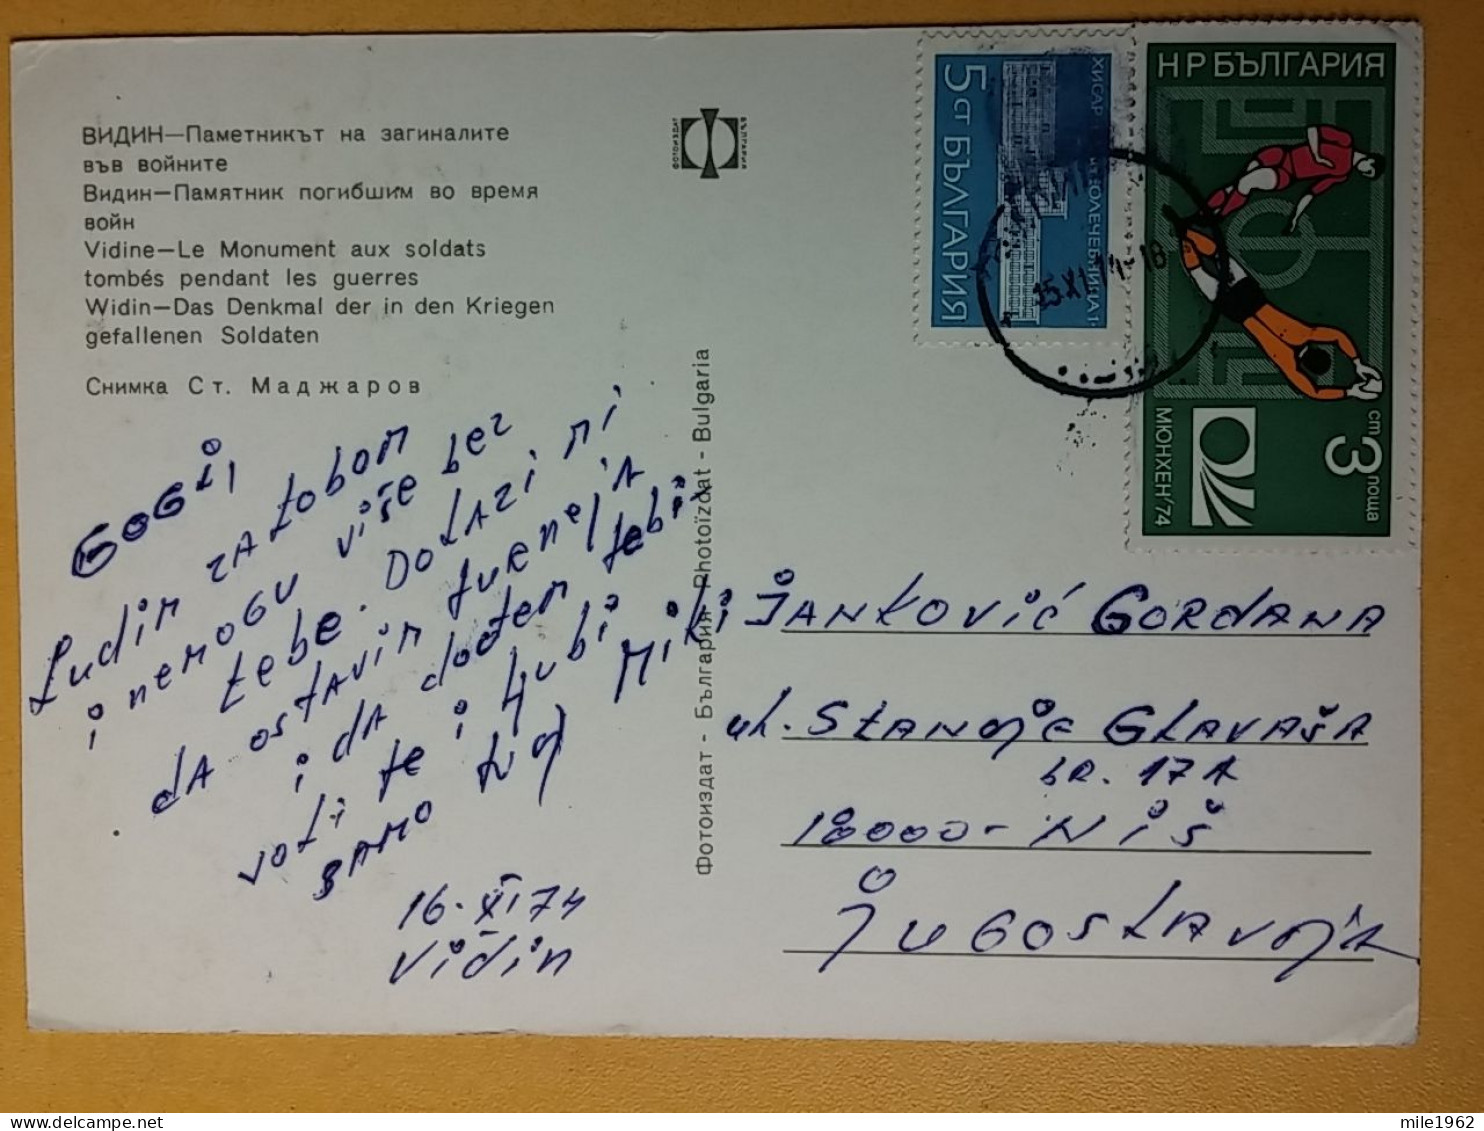 ВИДИН—Паметникът на загиналите
във войните
Видин—Памятник погибшим во время
войн
Vidine—Le Monument aux soldats
tombés pendant les guerres
Widin—Das Denkmal der in den Kriegen
gefallenen Soldaten
Снимка Ст. Маджаров
ФОТОИЗДАТ
БЪЛГАРИЯ
GOGI,
Ludim za tobom
i nemogu više bez
tebe. Dolazi mi
da ostavim
i da dođem tebi
voli te i ljubi
samo tvoj Miki
16. XI 74
Vidin
Фотоиздат - България - Photoïzdat - Bulgaria
5 ст БЪЛГАРИЯ
ХИСАР
25.XI.74-18
НР БЪЛГАРИЯ
МЮНХЕН'74
3 ст
поща
Janković Gordana
ul. Stanoje Glavaša
br. 17A
18000 - Niš
Jugoslavija
mile1962